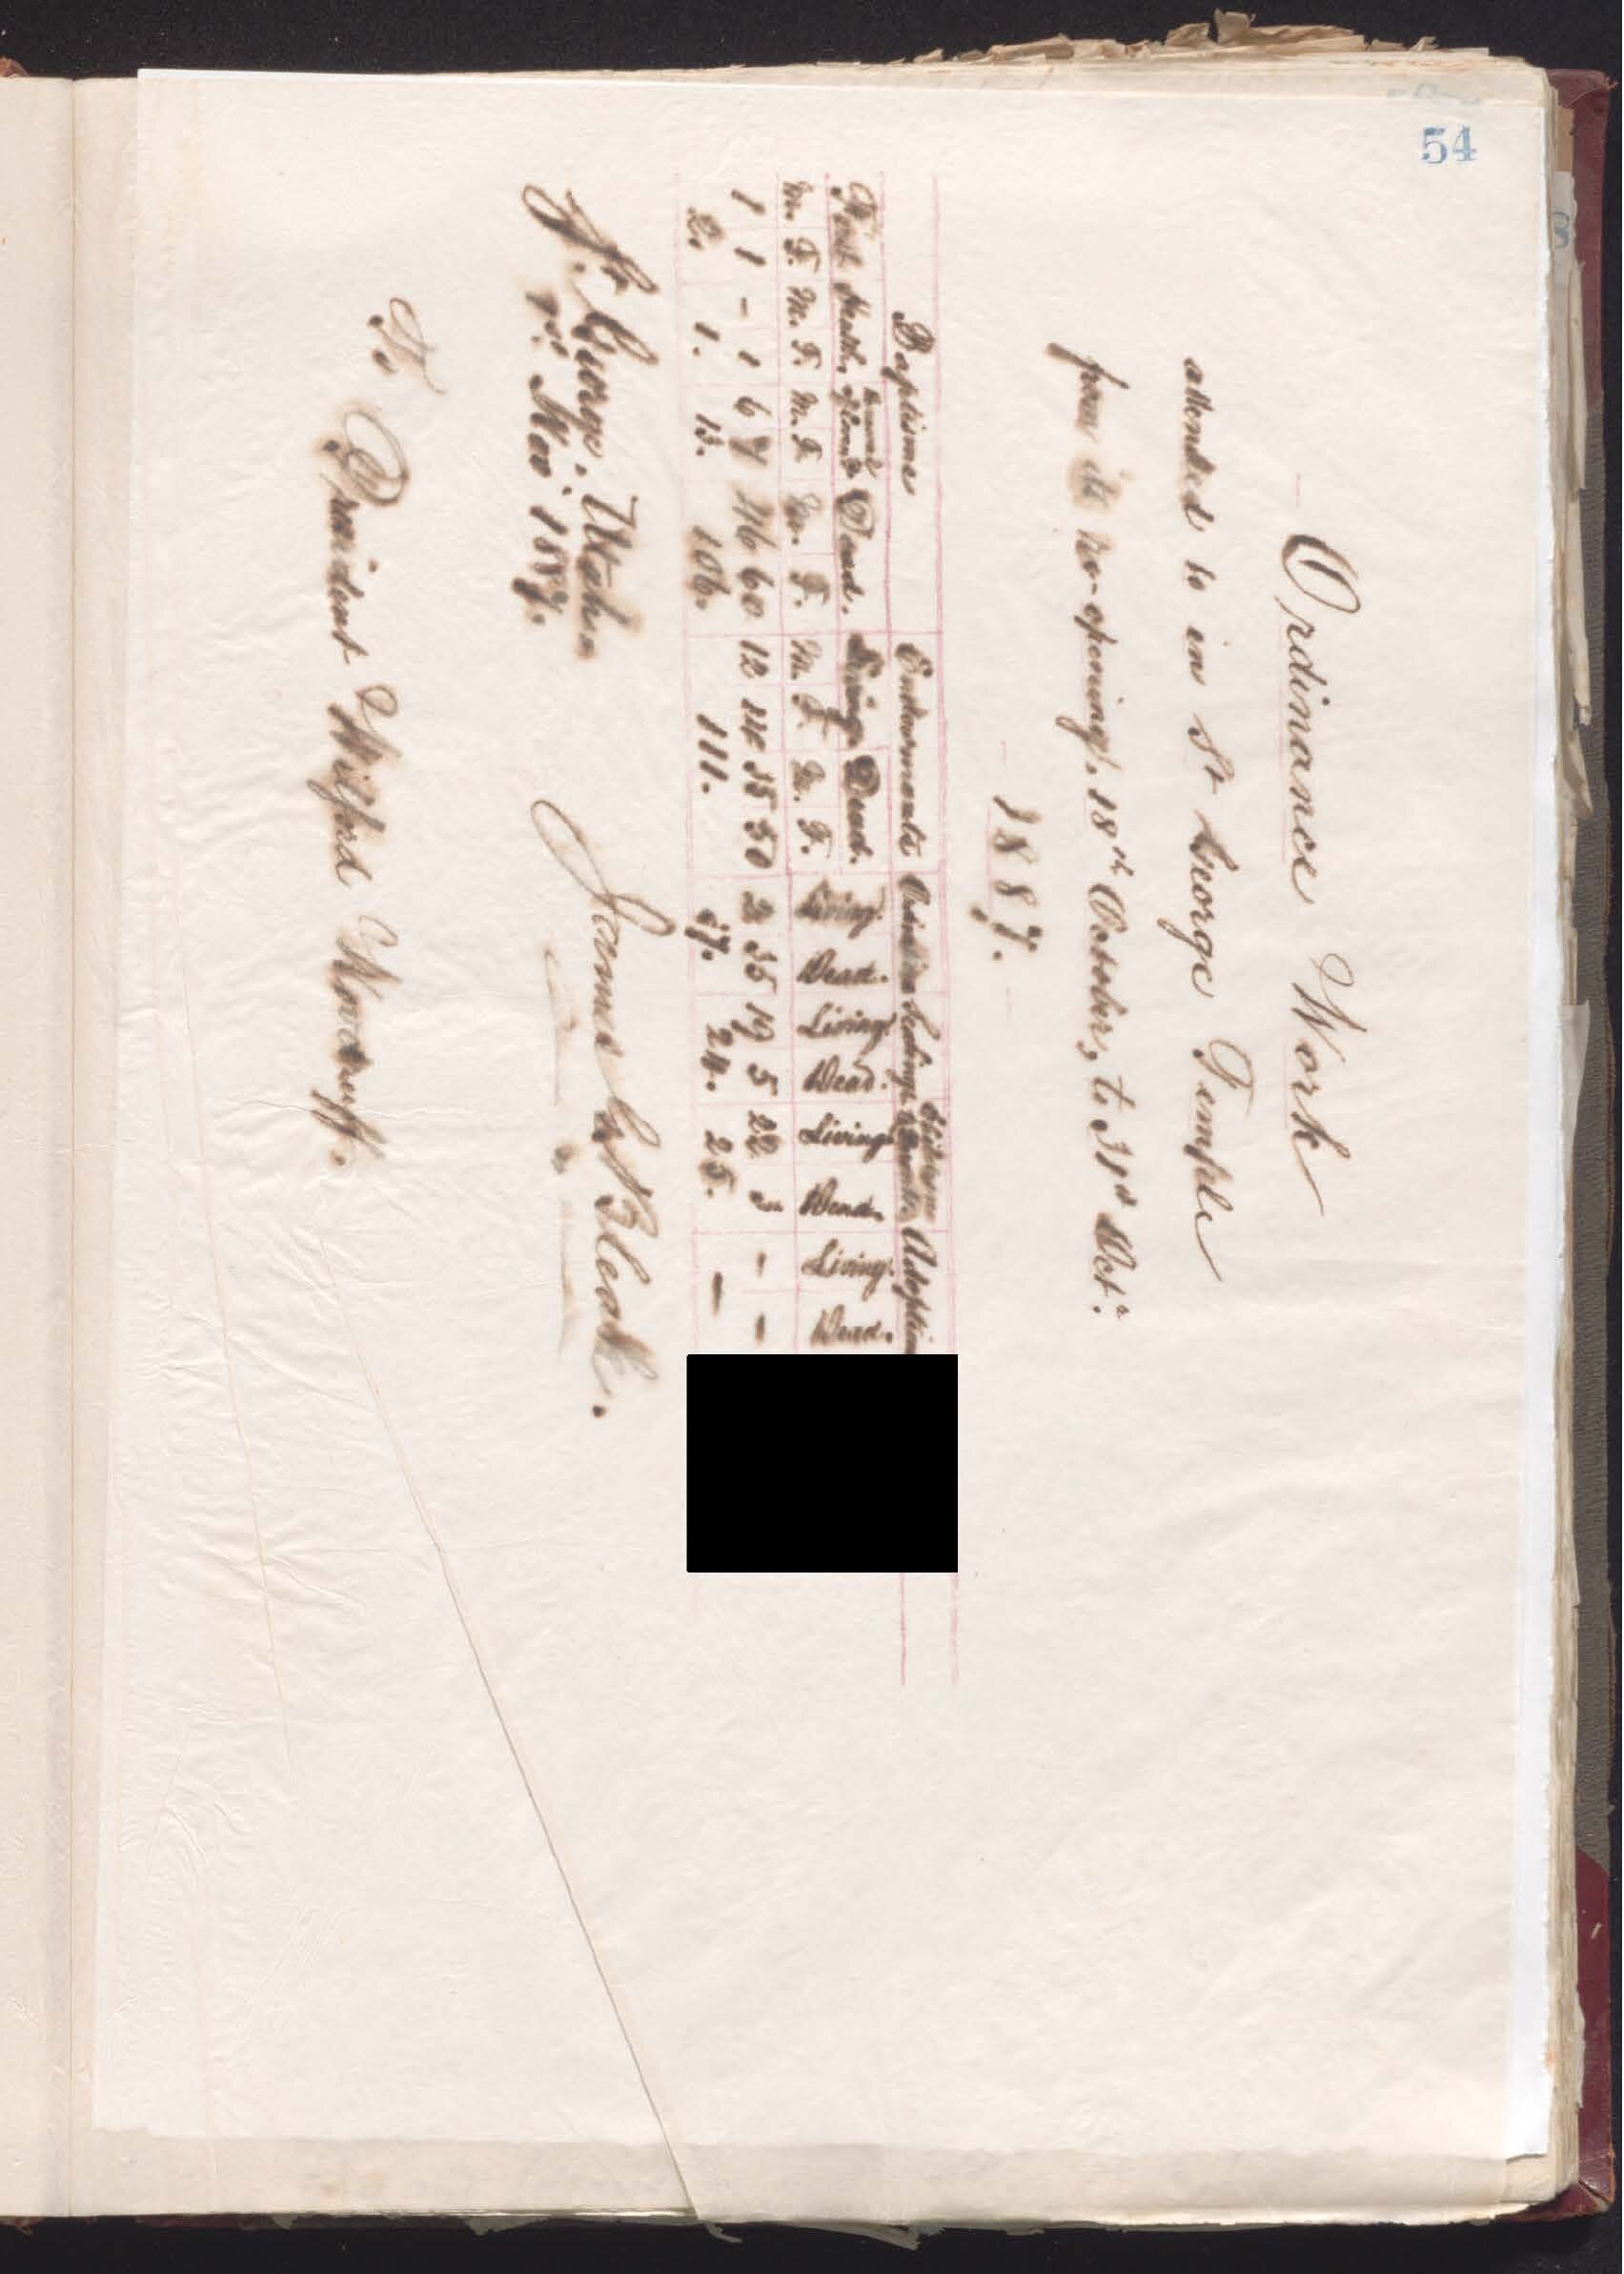 54
Ordinance Work
attended to in St George Temple
from its re-opening, 18th October, to 31st Octr.
1887.
Baptisms Endowments Ordin Sealings Children Adoption
First Health. Renewal Dead. Living Dead. Living. Dead. Living. Dead. Living. Dead. Living. Dead.
M. F. M. F. M. F. M. F. M. F. M. F.
1 1 - 1 6 7 46 60 12 14 35 50 2 35 19 5 22 3 - -
2. 1. 13. 106. 111. 37. 24. 25. -
St. George. Utah.
1st. Nov. 1887.
James G Bleak.
To President Wilford Woodruff.